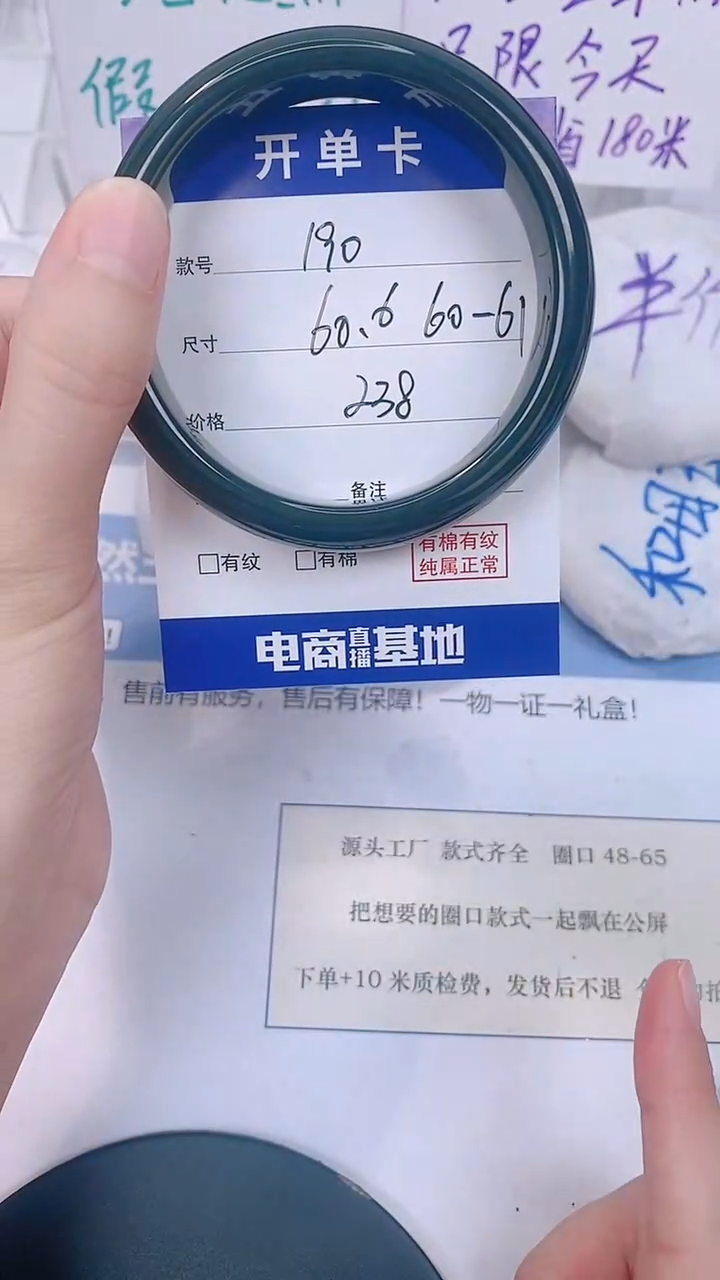 假
限今天
省180米
开单卡
款号 190
尺寸 60.6 60-61
价格 238
备注
□有纹 □有棉
有棉有纹
纯属正常
电商直播基地
半价
售前有服务，售后有保障！一物一证一礼盒！
源头工厂 款式齐全 圈口48-65
把想要的圈口款式一起飘在公屏
下单+10米质检费，发货后不退